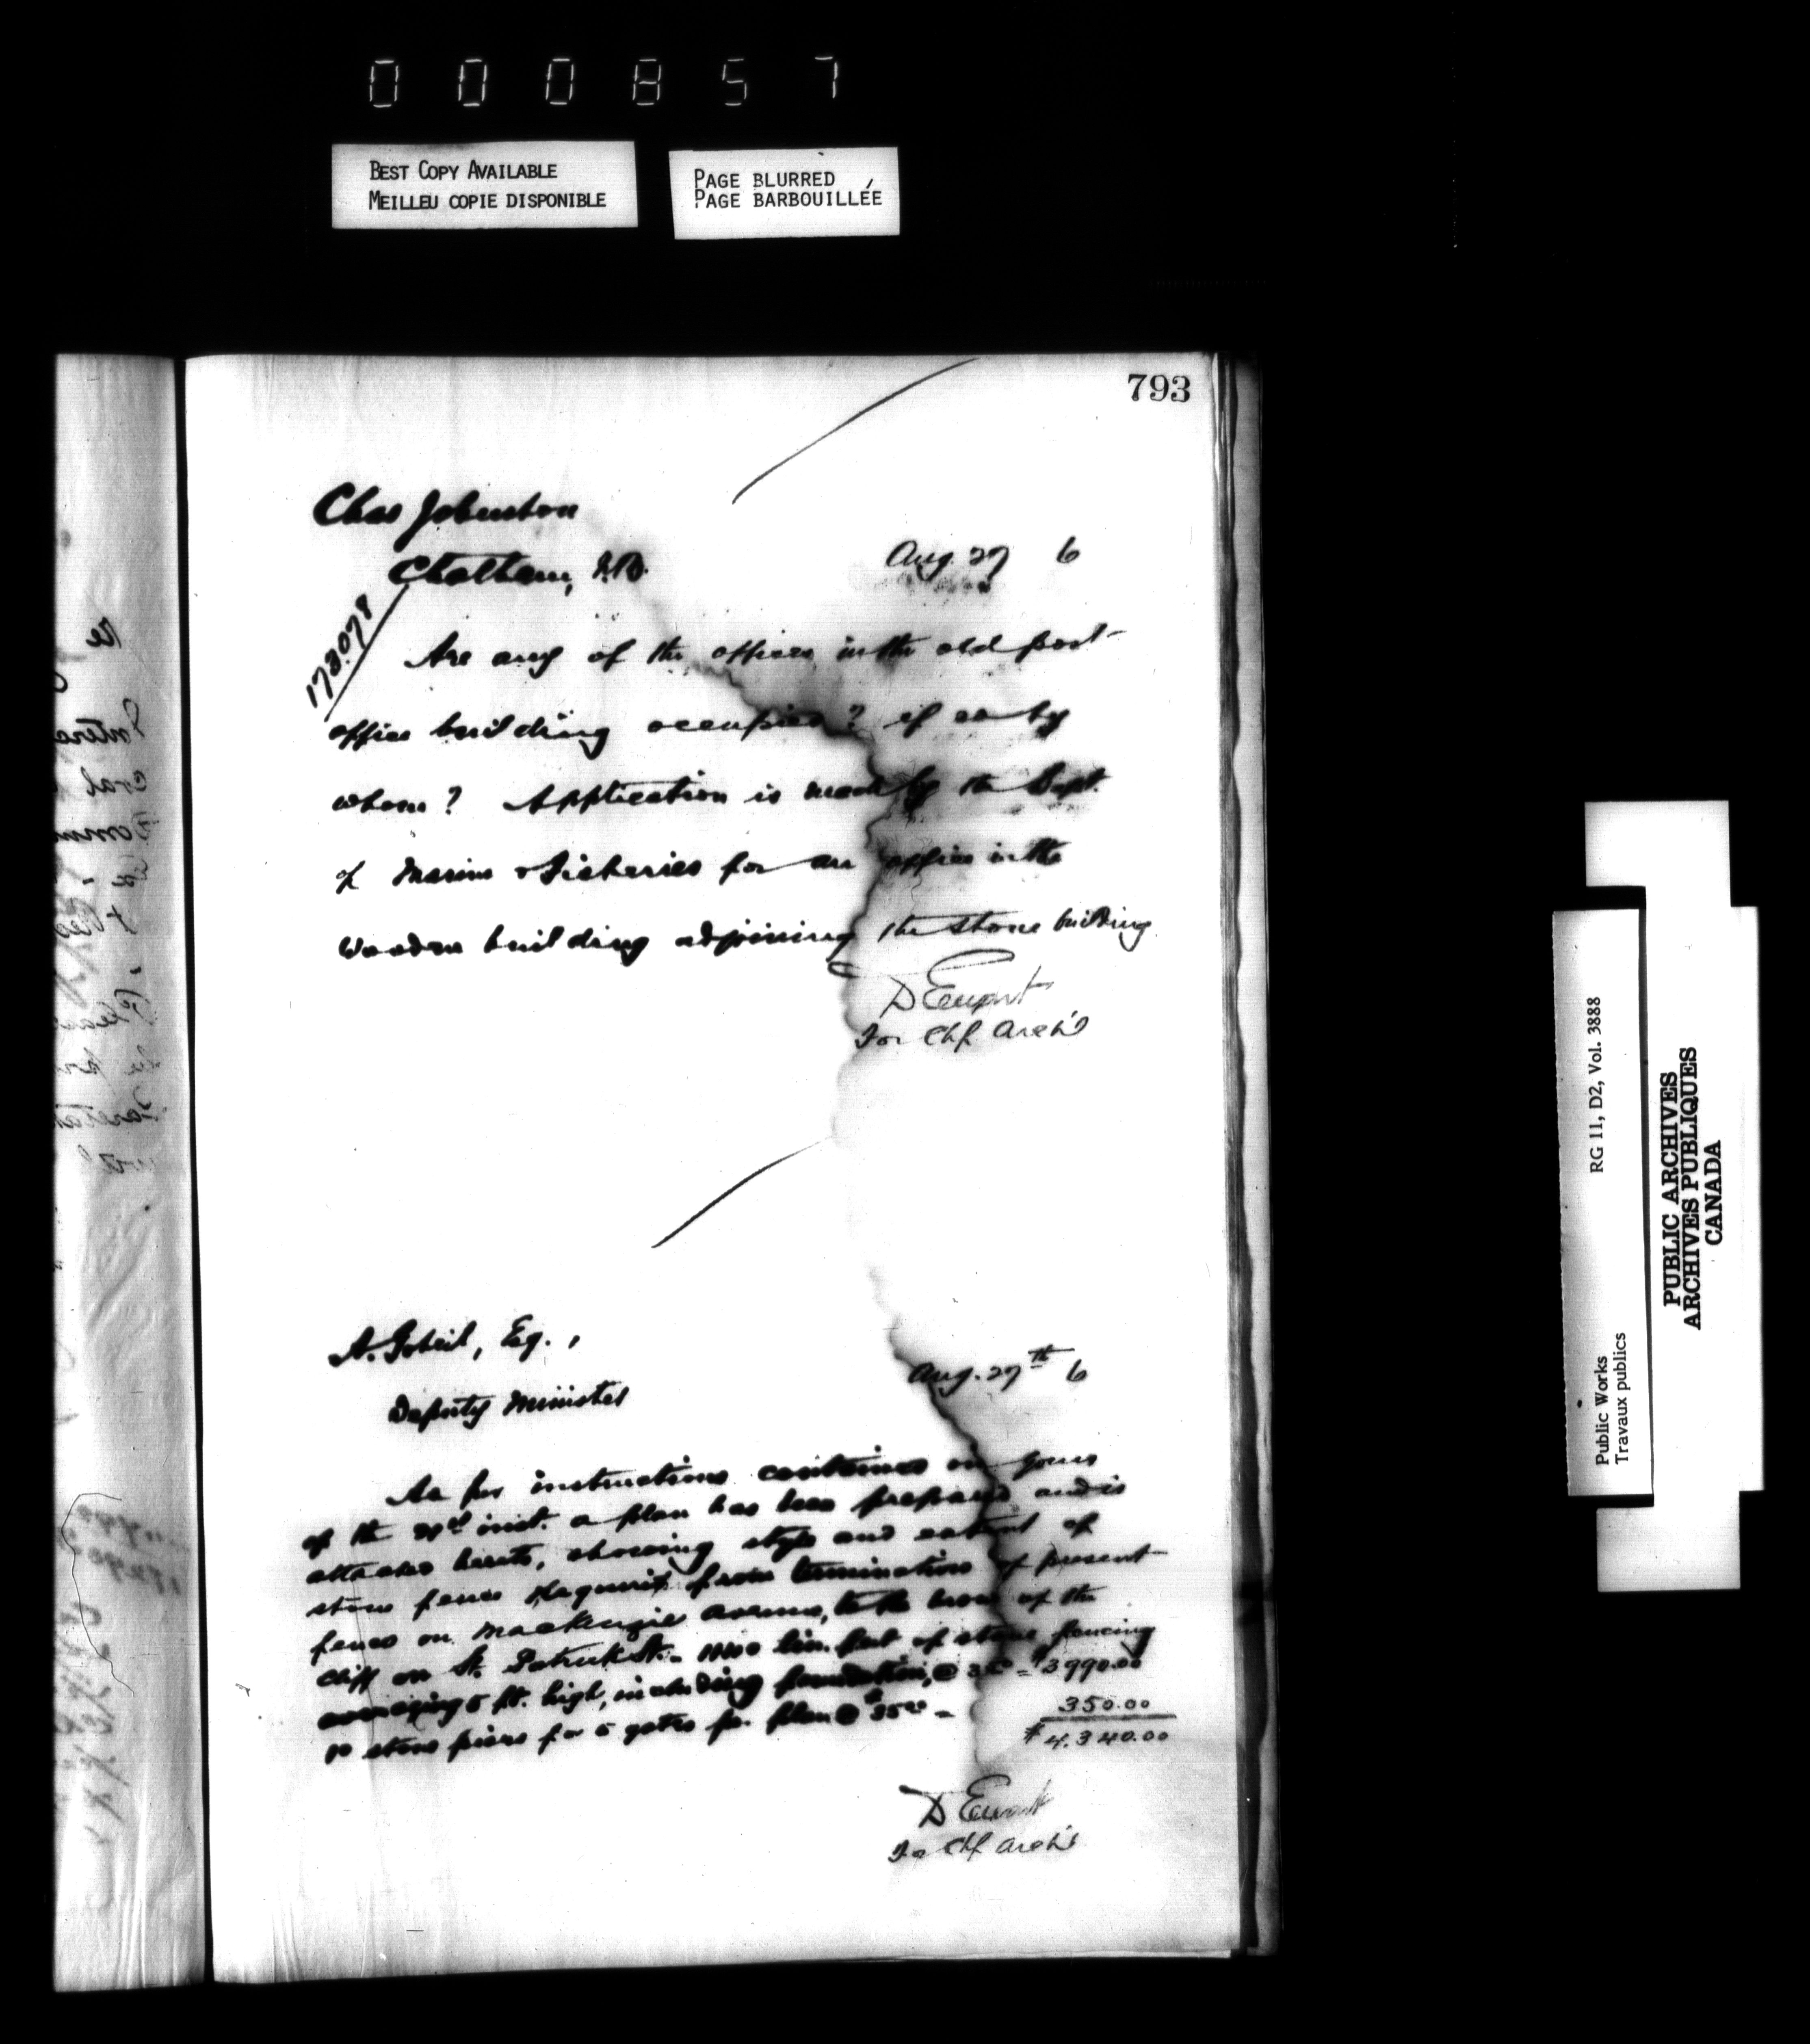 000857
BEST COPY AVAILABLE
MEILLEU COPIE DISPONIBLE
PAGE BLURRED
PAGE BARBOUILLÉE
793
Chas Johnston
Chatham, N.B.
Aug. 27 6
178078
Are any of the offices in the old post
office building occupied? if so by
whom? Application is made by the Dept.
of Marine & Fisheries for an office in the
wooden building adjoining the stone building
D Ewart
For Chf Arch't
A. Gobeil, Esq.,
Aug. 27th 6
Deputy Minister
As per instructions contained in yours
of the inst. a plan has been prepared and is
attached hereto, showing style and extent of
stone fence required from termination of present
fence on Mackenzie Avenue, to the brow of the
cliff on St. Patrick St. - lin. feet of stone fencing
averaging 5 ft. high, including foundation, @ 3.50 = $3990.00
10 stone piers for 5 gates per plan @ $35.00 = 350.00
$4.340.00
D Ewart
For Chf Arch't
Public Works
Travaux publics
RG 11, D2, Vol. 3888
PUBLIC ARCHIVES
ARCHIVES PUBLIQUES
CANADA